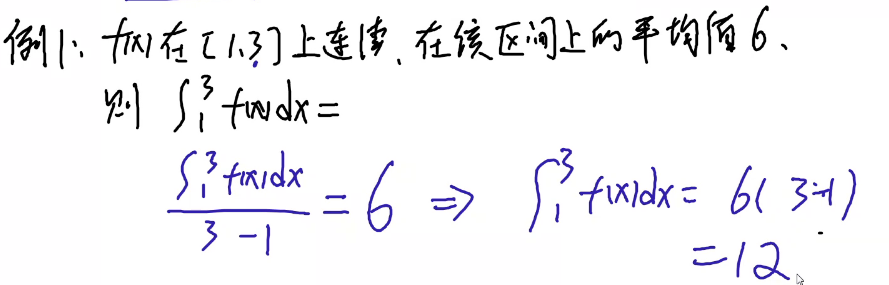 例1: f(x)在[1,3]上连续、在该区间上的平均值6、
则 ∫₁³ f(x)dx =
∫₁³ f(x)dx / (3-1) = 6 ⇒ ∫₁³ f(x)dx = 6(3-1)
=12.